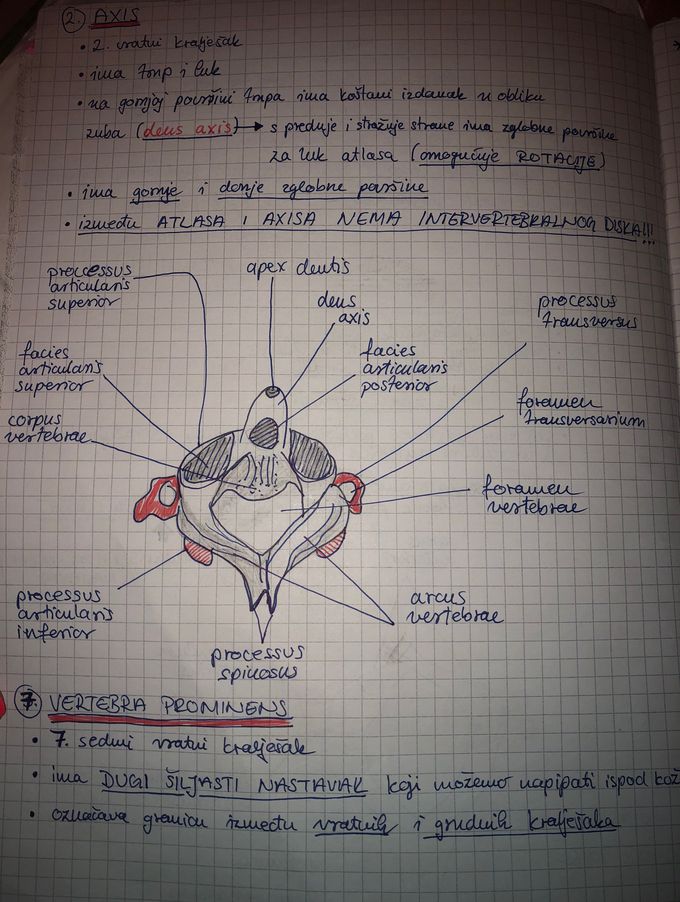 2. AXIS
• 2. vratni kralješak
• ima trup i luk
• na gornjoj površini trupa ima koštani izdanak u obliku
zuba (dens axis) → s prednje i stražnje strane ima zglobne površine
za luk atlasa (omogućuje ROTACIJE)
• ima gornje i donje zglobne površine
• između ATLASA I AXISA NEMA INTERVERTEBRALNOG DISKA!!!
processus
articularis
superior
apex dentis
dens
axis
processus
transversus
facies
articularis
superior
facies
articularis
posterior
corpus
vertebrae
foramen
transversarium
foramen
vertebrae
processus
articularis
inferior
arcus
vertebrae
processus
spinosus
7. VERTEBRA PROMINENS
• 7. sedmi vratni kralješak
• ima DUGI ŠILJASTI NASTAVAK koji možemo napipati ispod kož
• označava granicu između vratnih i grudnih kralješaka